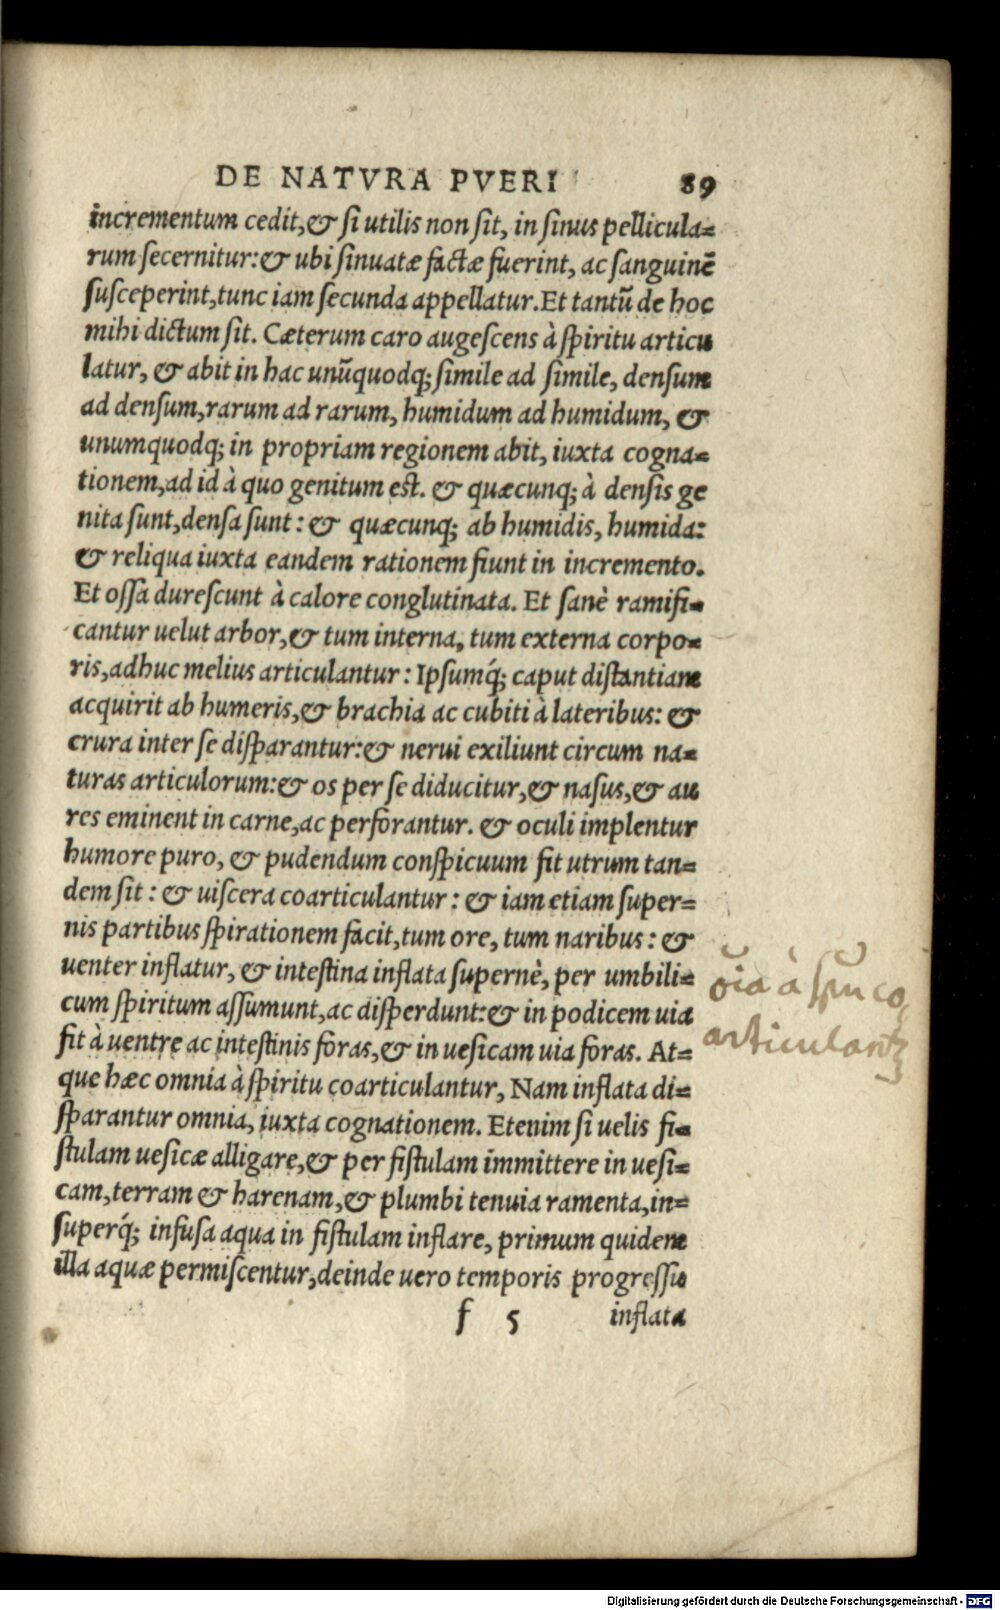 DE NATVRA PVERI 89
incrementum cedit,& si utilis non sit, in sinus pellicula=
rum secernitur:& ubi sinuatæ factæ fuerint, ac sanguinẽ
susceperint,tunc iam secunda appellatur.Et tantũ de hoc
mihi dictum sit. Cæterum caro augescens à spiritu articu
latur, & abit in hac unũquodq; simile ad simile, densum
ad densum,rarum ad rarum, humidum ad humidum, &
unumquodq; in propriam regionem abit, iuxta cogna=
tionem,ad id à quo genitum est. & quæcunq; à densis ge
nita sunt,densa sunt : & quæcunq; ab humidis, humida:
& reliqua iuxta eandem rationem fiunt in incremento.
Et ossa durescunt à calore conglutinata. Et sanè ramifi=
cantur uelut arbor,& tum interna, tum externa corpo=
ris,adhuc melius articulantur : Ipsumq́; caput distantiam
acquirit ab humeris,& brachia ac cubiti à lateribus: &
crura inter se disparantur:& nerui exiliunt circum na=
turas articulorum:& os per se diducitur,& nasus,& au
res eminent in carne,ac perforantur. & oculi implentur
humore puro, & pudendum conspicuum fit utrum tan=
dem sit : & uiscera coarticulantur : & iam etiam super=
nis partibus spirationem facit,tum ore, tum naribus : &
uenter inflatur, & intestina inflata supernè, per umbili=
cum spiritum assumunt,ac disperdunt:& in podicem uia
fit à uentre ac intestinis foras,& in uesicam uia foras. At=
que hæc omnia à spiritu coarticulantur, Nam inflata di=
sparantur omnia, iuxta cognationem. Etenim si uelis fi=
stulam uesicæ alligare,& per fistulam immittere in uesi=
cam,terram & harenam,& plumbi tenuia ramenta,in=
superq́; infusa aqua in fistulam inflare, primum quidem
illa aquæ permiscentur,deinde uero temporis progressu
f 5 inflata
õia à spũ co
articulantꝛ
Digitalisierung gefördert durch die Deutsche Forschungsgemeinschaft - DFG